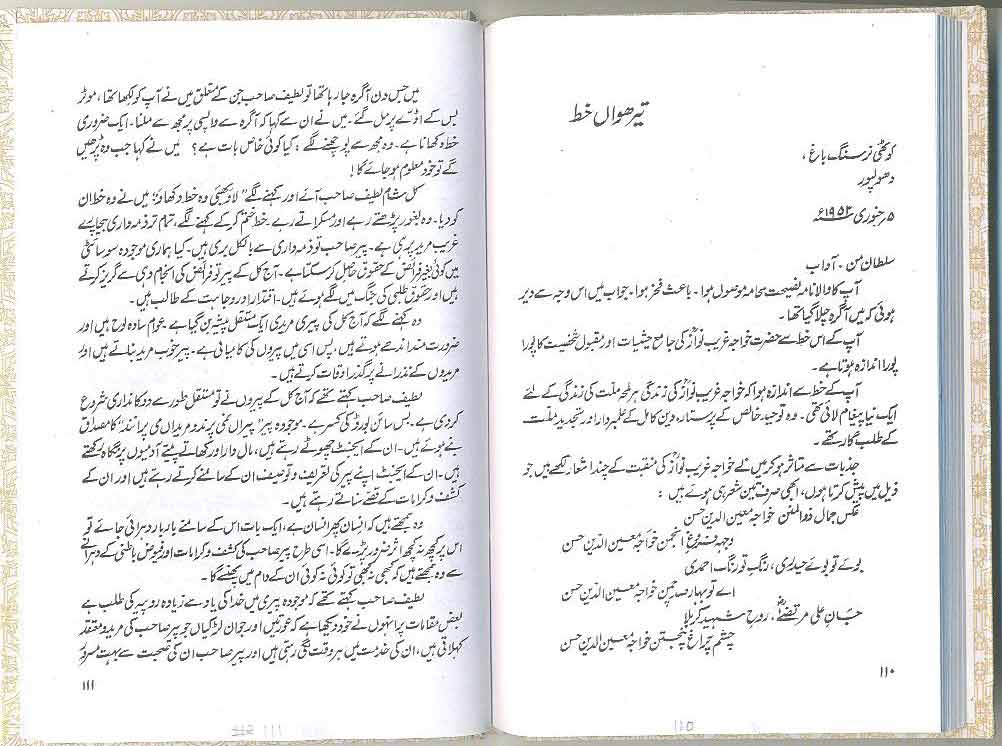 تیرھواں خط
کوٹھی نرسنگ باغ،
دھولپور
۵ جنوری ۱۹۵۳ء
سلطان من۔ آداب
آپ کا والا نامہ نصیحت شمامہ موصول ہوا۔ باعث فخر ہوا۔ جواب میں اس وجہ سے دیر
ہوئی کہ میں آگرہ چلا گیا تھا۔
آپ کے اس خط سے حضرت خواجہ غریب نوازؒ کی جامع حیثیات اور مقبول شخصیت کا پورا
پورا اندازہ ہوتا ہے۔
آپ کے خط سے اندازہ ہوا کہ خواجہ غریب نوازؒ کی زندگی ہر لمحہ ملت کی زندگی کے لئے
ایک نیا پیغام لاتی تھی۔ وہ توحید خالص کے پرستار، دین کامل کے علمبردار اور تجدید ملت
کے طلب گار تھے۔
جذبات سے متاثر ہو کر میں نے خواجہ غریب نوازؒ کی منقبت کے چند اشعار لکھے ہیں جو
ذیل میں پیش کرتا ہوں، ابھی صرف تین شعر ہی ہوئے ہیں :
عکس جمال ذوالمنن خواجہ معین الدین حسن
وجہہ فروغ انجمن خواجہ معین الدین حسن
بوئے تو بوئے حیدری، رنگ تو رنگ احمدی
اے تو بہار صد چمن خواجہ معین الدین حسن
جان علی مرتضیٰؓ، روح شہید کربلا
چشم چراغ پنجتن خواجہ معین الدین حسن
۱۱۰
110
میں جس دن آگرہ جا رہا تھا تو لطیف صاحب جن کے متعلق میں نے آپ کو لکھا تھا، موٹر
بس کے اڈے پر مل گئے۔ میں نے ان سے کہا کہ آگرہ سے واپسی پر مجھ سے ملنا۔ ایک ضروری
خط دکھانا ہے۔ وہ مجھ سے پوچھنے لگے : کیا کوئی خاص بات ہے؟ میں نے کہا جب وہ پڑھیں
گے تو خود معلوم ہو جائے گا!
کل شام لطیف صاحب آئے اور کہنے لگے "لاؤ بھئی وہ خط دکھاؤ"؛ میں نے وہ خط ان
کو دیا۔ وہ بغور پڑھتے رہے اور مسکراتے رہے۔ خط ختم کر کے کہنے لگے، تمام تر ذمہ داری بیچارے
غریب مرید پر ہی ہے۔ پیر صاحب تو ذمہ داری سے بالکل بری ہیں۔ کیا ہماری موجودہ سوسائٹی
میں کوئی بغیر فرائض کے حقوق حاصل کر سکتا ہے۔ آج کل کے پیر تو فرائض کی انجام دہی سے گریز کرتے
ہیں اور حقوق طلبی کی جنگ میں لگے ہوئے ہیں۔ اقتدار اور وجاہت کے طالب ہیں۔
وہ کہنے لگے کہ آج کل کی پیری مریدی ایک مستقل پیشہ بن گیا ہے۔ عوام سادہ لوح ہیں اور
ضرورت مند اندھے ہوتے ہیں، بس اسی میں پیروں کی کامیابی ہے۔ پیر خوب مرید بناتے ہیں اور
مریدوں کے نذرانے پر گذر اوقات کرتے ہیں۔
لطیف صاحب کہتے تھے کہ آج کل کے پیروں نے تو مستقل طور سے دوکانداری شروع
کر دی ہے۔ بس سائن بورڈ کی کسر ہے۔ موجودہ پیر "پیراں نمی پرند و مریداں می پرانند" کا مصداق
بنے ہوئے ہیں۔ ان کے ایجنٹ چھوٹے رہتے ہیں، مال دار اور کھاتے پیتے آدمیوں پر نگاہ رکھتے
ہیں۔ ان کے ایجنٹ اپنے پیر کی تعریف و توصیف ان کے سامنے کرتے رہتے ہیں اور ان کے
کشف و کرامات کے قصے سناتے رہتے ہیں۔
وہ سمجھتے ہیں کہ انسان پھر انسان ہے، ایک بات اس کے سامنے بار بار دہرائی جائے تو
اس پر کچھ نہ کچھ اثر ضرور پڑے گا۔ اسی طرح پیر صاحب کی کشف و کرامات اور فیوض باطنی کے دہرانے
سے وہ سمجھتے ہیں کہ کبھی نہ کبھی تو کوئی نہ کوئی ان کے دام میں پھنسے گا۔
لطیف صاحب کہتے تھے کہ موجودہ پیری میں خدا کی یاد سے زیادہ روپیہ کی طلب ہے
بعض مقامات پر انہوں نے خود دیکھا ہے کہ عورتیں اور جوان لڑکیاں جو پیر صاحب کی مرید و معتقد
کہلاتی ہیں، ان کی خدمت میں ہر وقت لگی رہتی ہیں اور پیر صاحب ان کی صحبت سے بہت مسرور
۱۱۱
111